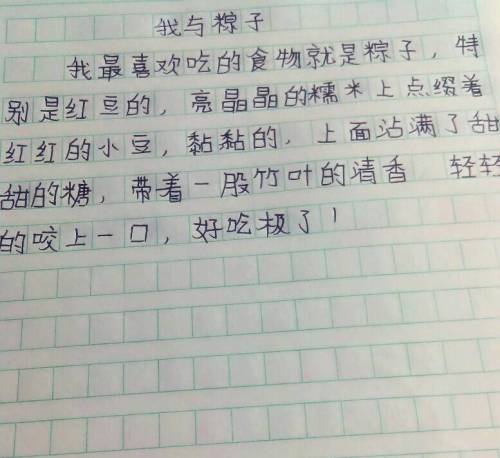 我与粽子
我最喜欢吃的食物就是粽子，特
别是红豆的，亮晶晶的糯米上点缀着
红红的小豆，黏黏的，上面沾满了甜
甜的糖，带着一股竹叶的清香 轻轻
的咬上一口，好吃极了！